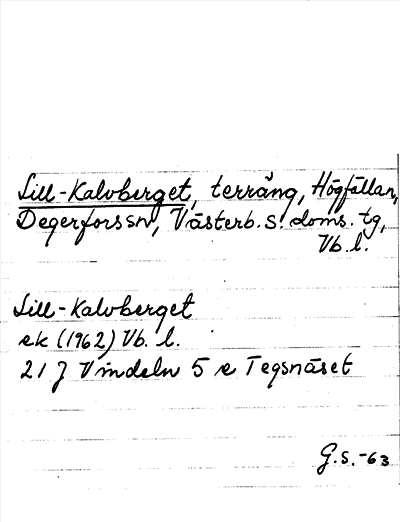 Lill-Kalvberget, terräng, Högfällan,
Degerfors sn, Västerb. s. doms. tg,
Vb. l.
Lill-Kalvberget
ek (1962) Vb. l.
21 J Vindeln 5 e Tegsnäset
G.S.-63